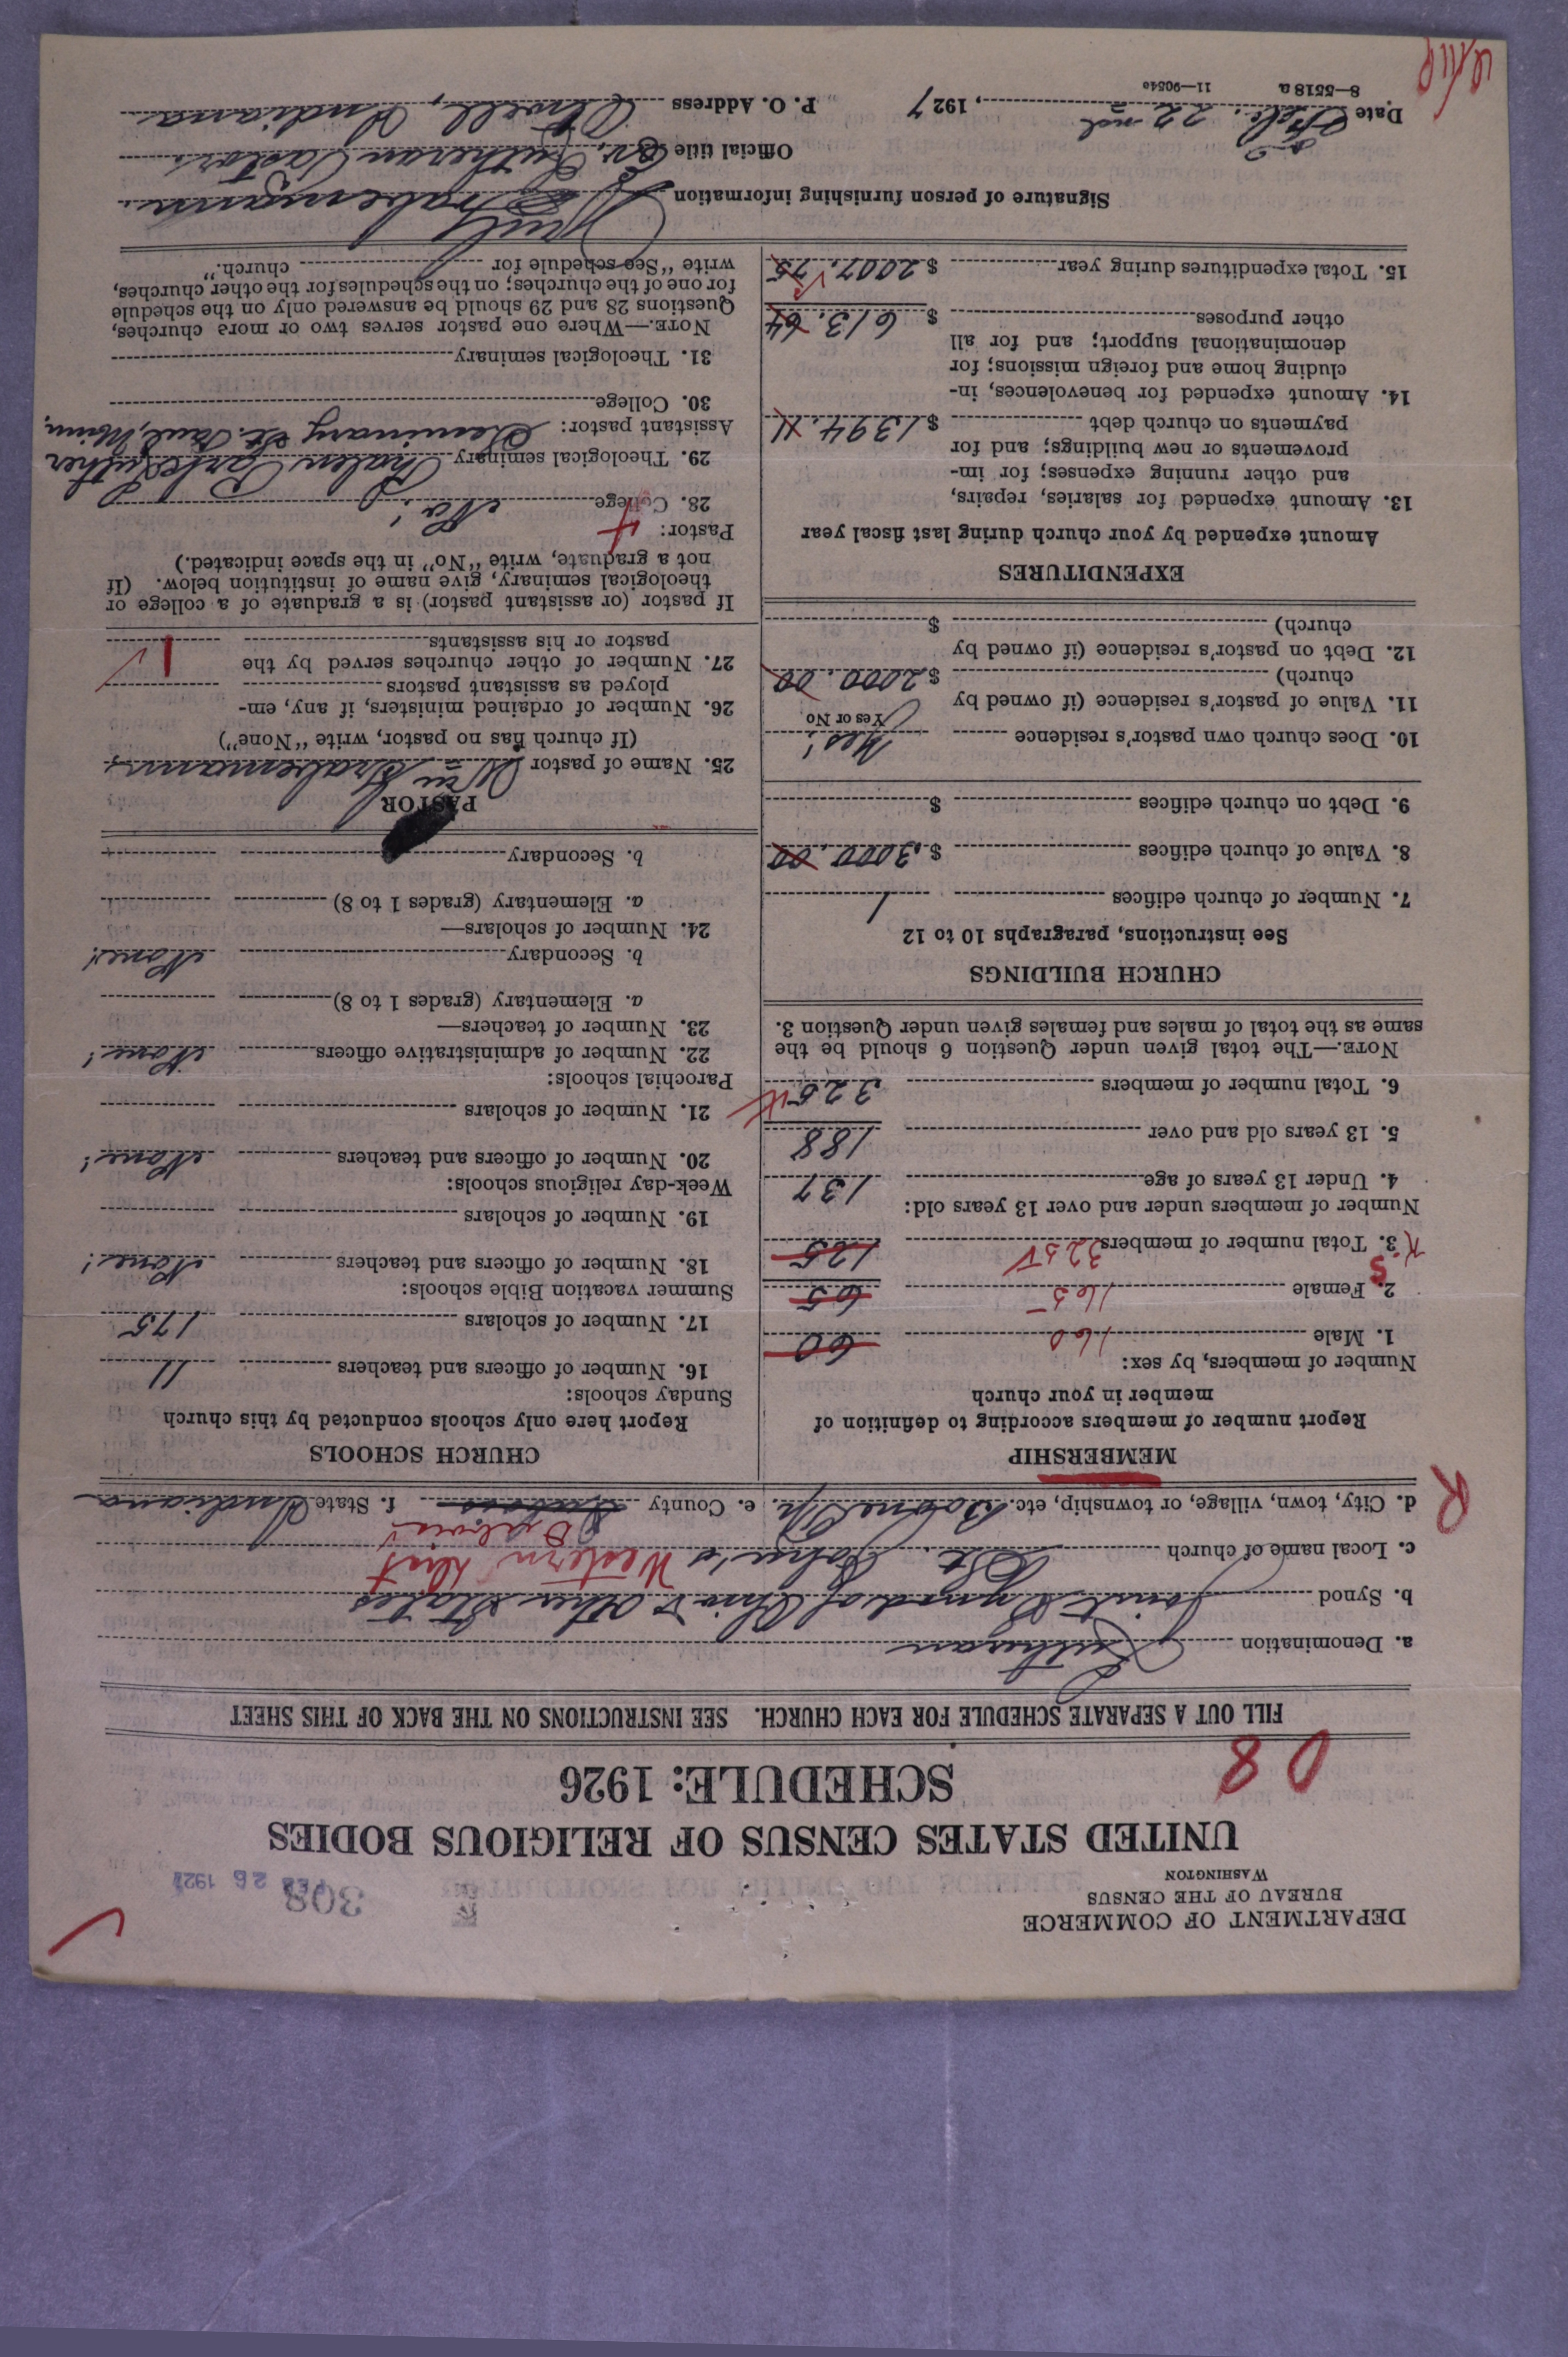 DEPARTMENT OF COMMERCE
BUREAU OF THE CENSUS
WASHINGTON
308
FEB 26 1927
UNITED STATES CENSUS OF RELIGIOUS BODIES
SCHEDULE: 1926
08
FILL OUT A SEPARATE SCHEDULE FOR EACH CHURCH. SEE INSTRUCTIONS ON THE BACK OF THIS SHEET
a. Denomination Lutheran
b. Synod Joint Synod of Ohio & Other States
Western Dist
c. Local name of church St. John's
d. City, town, village, or township, etc. Boone Tp. e. County Dubois f. State Indiana
R
MEMBERSHIP
Report number of members according to definition of
member in your church
Number of members, by sex:
1. Male 160 60
2. Female 165 65
3. Total number of members 325 125
Number of members under and over 13 years old:
4. Under 13 years of age 137
5. 13 years old and over 188
6. Total number of members 325
NOTE.—The total given under Question 6 should be the
same as the total of males and females given under Question 3.
CHURCH BUILDINGS
See instructions, paragraphs 10 to 12
7. Number of church edifices 1
8. Value of church edifices $3000.00
9. Debt on church edifices $
10. Does church own pastor's residence Yes!
Yes or No
11. Value of pastor's residence (if owned by
church) $2000.00
12. Debt on pastor's residence (if owned by
church) $
EXPENDITURES
Amount expended by your church during last fiscal year
13. Amount expended for salaries, repairs,
and other running expenses; for im-
provements or new buildings; and for
payments on church debt $1394.11
14. Amount expended for benevolences, in-
cluding home and foreign missions; for
denominational support; and for all
other purposes $613.64
15. Total expenditures during year $2007.75
CHURCH SCHOOLS
Report here only schools conducted by this church
Sunday schools:
16. Number of officers and teachers 11
17. Number of scholars 175
Summer vacation Bible schools:
18. Number of officers and teachers None!
19. Number of scholars
Week-day religious schools:
20. Number of officers and teachers None!
21. Number of scholars
Parochial schools:
22. Number of administrative officers None!
23. Number of teachers—
a. Elementary (grades 1 to 8)
b. Secondary None!
24. Number of scholars—
a. Elementary (grades 1 to 8)
b. Secondary
PASTOR
25. Name of pastor Wm Grabemann
(If church has no pastor, write "None")
26. Number of ordained ministers, if any, em-
ployed as assistant pastors
27. Number of other churches served by the
pastor or his assistants 1
If pastor (or assistant pastor) is a graduate of a college or
theological seminary, give name of institution below. (If
not a graduate, write "No" in the space indicated.)
Pastor:
28. College No!
29. Theological seminary Phalen Park Luther
Seminary St. Paul, Minn.
Assistant pastor:
30. College
31. Theological seminary
NOTE.—Where one pastor serves two or more churches,
Questions 28 and 29 should be answered only on the schedule
for one of the churches; on the schedules for the other churches,
write "See schedule for church."
Signature of person furnishing information Grabemann
Official title Ev. Lutheran Pastor
Date Feb. 22nd, 1927 P. O. Address Indiana
8—5518 a 11—9054a